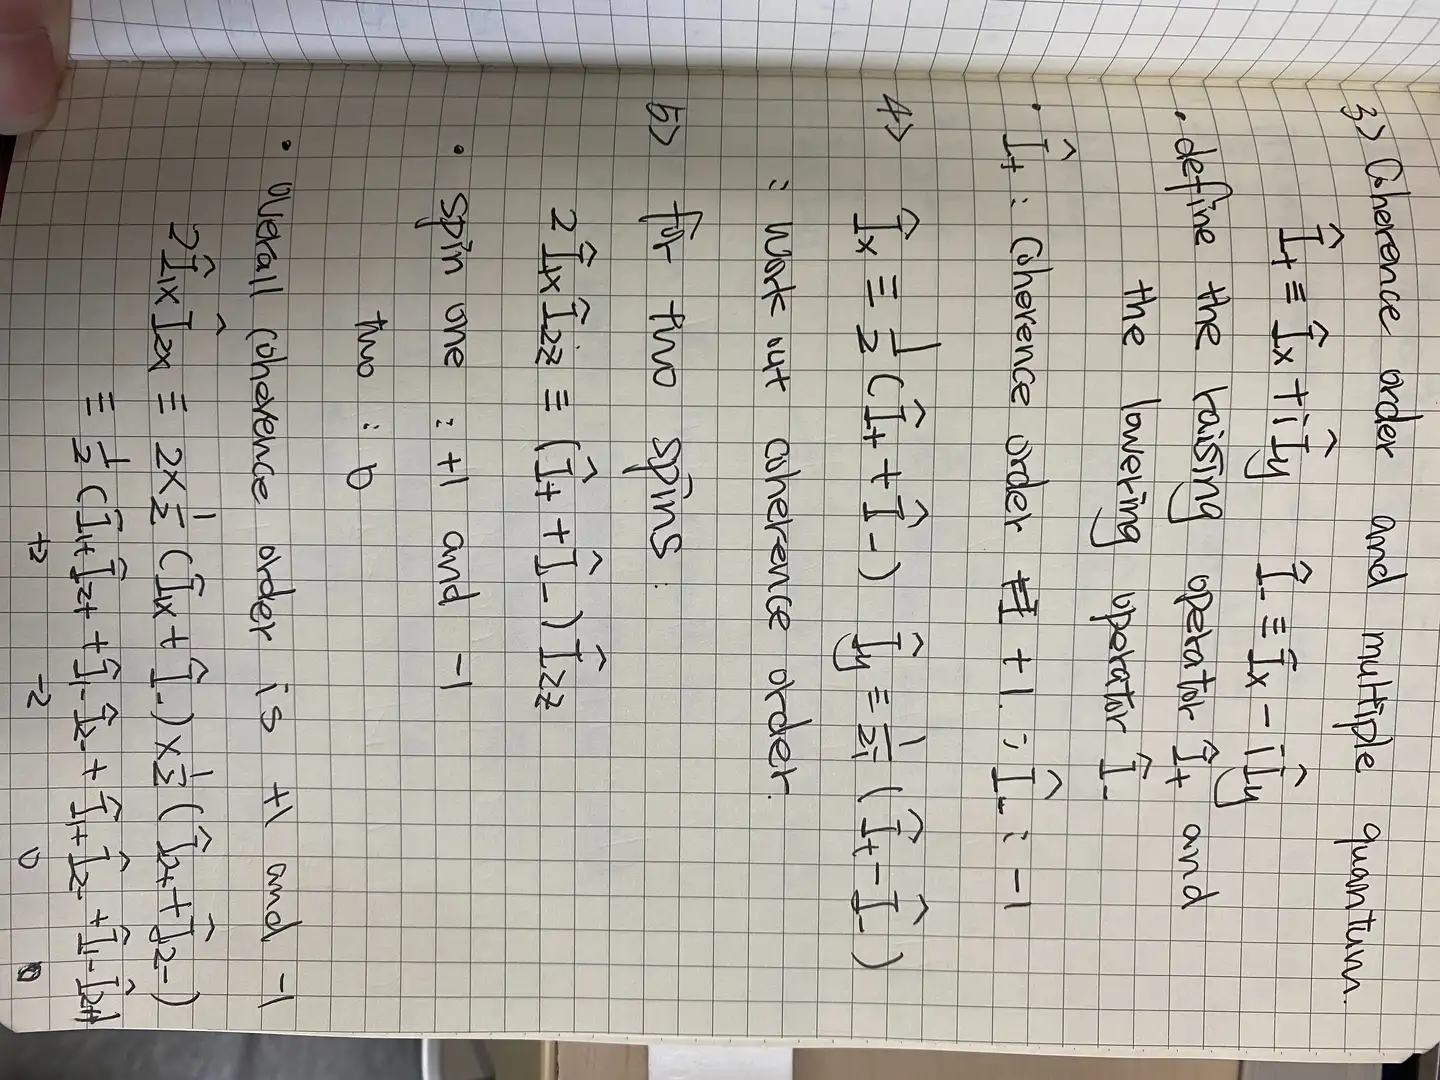 3> Coherence order and multiple quantum.
Î+ ≡ Îx + iÎy    Î- ≡ Îx - iÎy
• define the raising operator Î+ and
the lowering operator Î-
• Î+ : Coherence order +1. ; Î- : -1
4> Îx ≡ 1/2 (Î+ + Î-)    Îy ≡ 1/2i (Î+ - Î-)
: Work out coherence order.
5> for two spins :
2Î1xÎ2z ≡ (Î+ + Î-)Î2z
• spin one : +1 and -1
two : 0
• overall coherence order is +1 and -1
2Î1xÎ2x ≡ 2x1/2 (Î1x + Î-) x 1/2 (Î2+ + Î2-)
≡ 1/2 (Î1+Î2+ + Î1-Î2- + Î1+Î2- + Î1-Î2+)
+2    -2    0    0